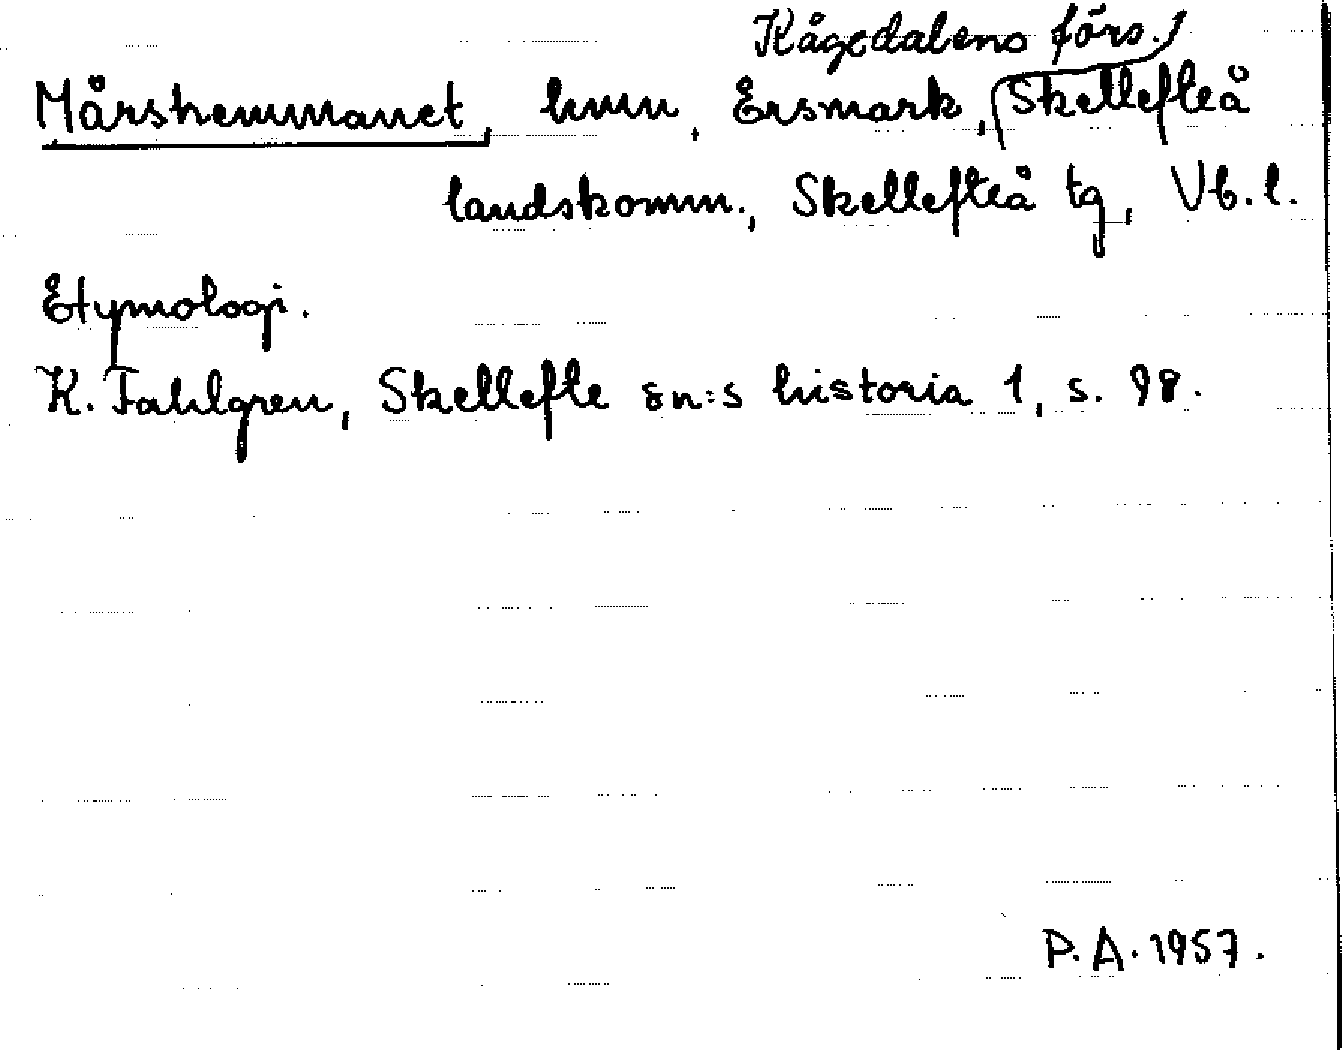 Kågedalens förs.
Mårshemmanet, hmn, Ersmark, Skellefteå
landskomm., Skellefteå tg, Vb. l.
Etymologi.
K. Fahlgren, Skellefte sn:s historia 1, s. 98.
P. A. 1957.